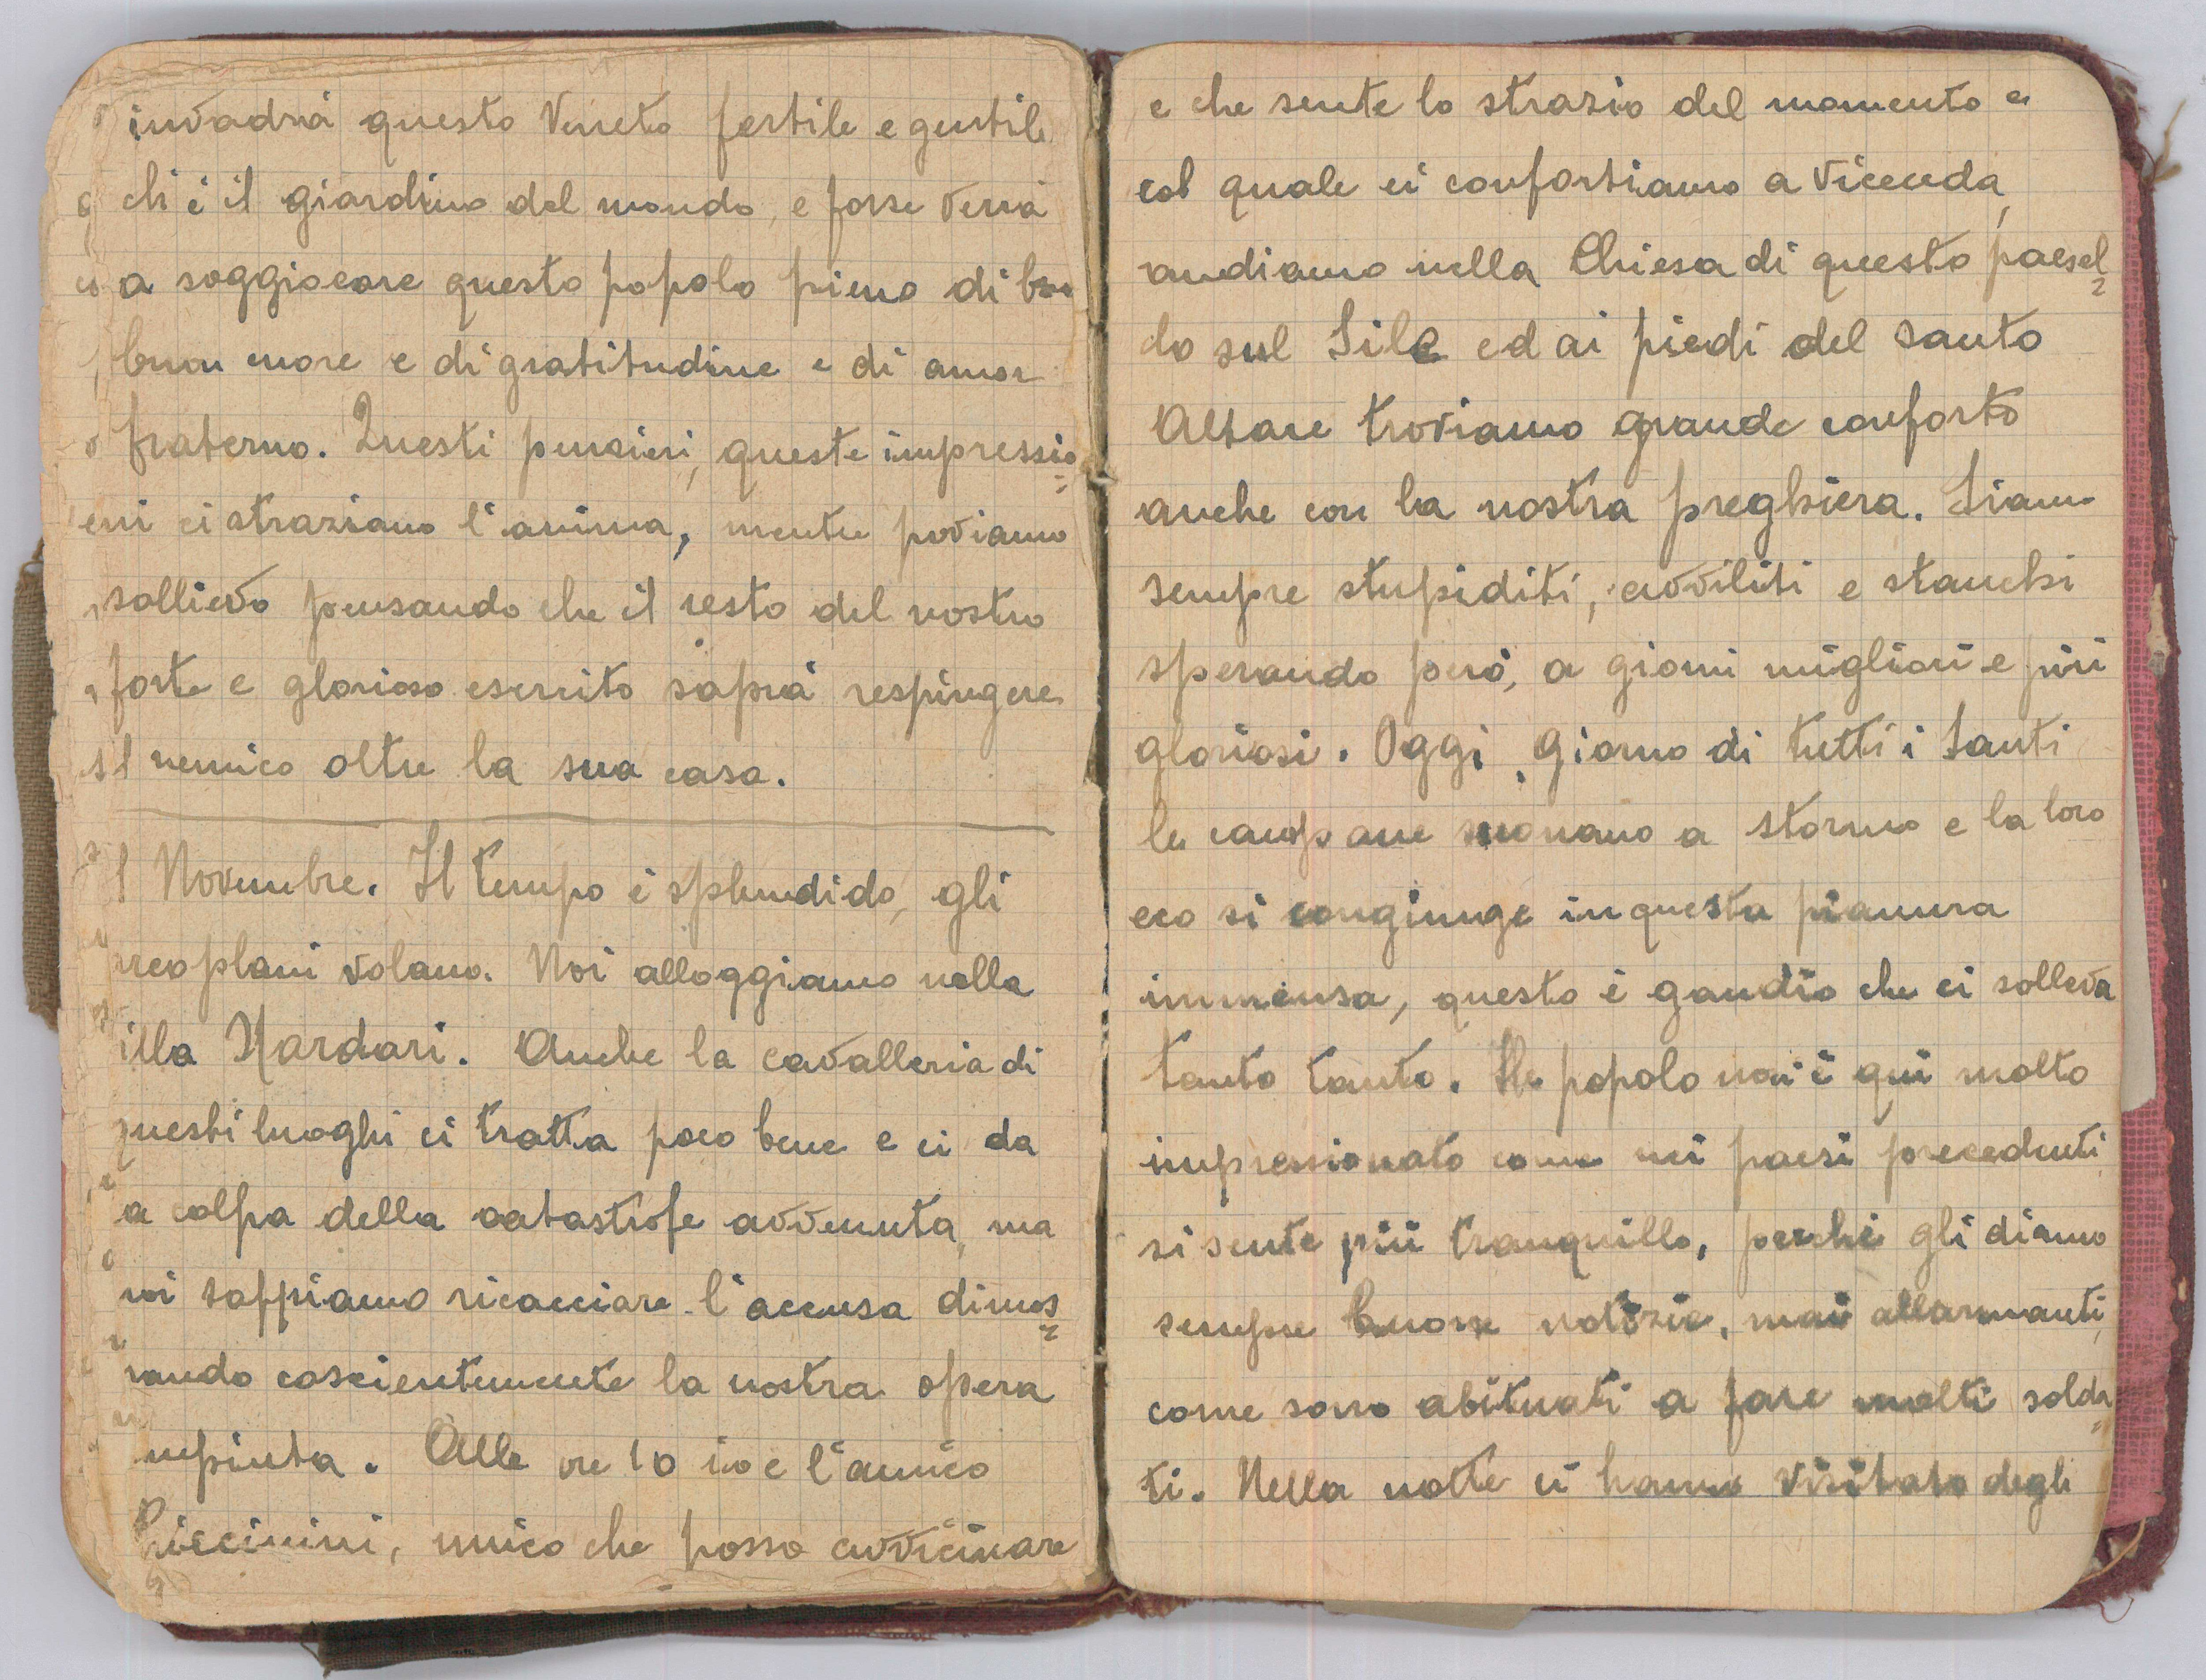 invadrà questo Veneto fertile e gentile
ch'è il giardino del mondo, e forse verrà
a soggiocare questo popolo pieno di
buon cuore e di gratitudine e di amor
fraterno. Questi pensieri, queste impressio=
ni ci straziano l'anima, mentre proviamo
sollievo pensando che il resto del nostro
forte e glorioso esercito saprà respingere
il nemico oltre la sua casa.
1 Novembre. Il tempo è splendido, gli
areoplani volano. Noi alloggiamo nella
illa Nardari. Anche la cavalleria di
questi luoghi ci tratta poco bene e ci da
a colpa della catastrofe avvenuta, ma
noi sappiamo ricacciare l'accusa dimos=
rando coscientemente la nostra opera
mpiuta. Alle ore 10 io e l'amico
Piccinini, unico che posso avvicinare
e che sente lo strazio del momento e
col quale ci confortiamo a vicenda,
andiamo nella Chiesa di questo paesel=
lo sul Sile ed ai piedi del santo
Altare troviamo grande conforto
anche con la nostra preghiera. Siamo
sempre stupiditi, avviliti e stanchi
sperando però, a giorni migliori e più
gloriosi. Oggi, giorno di tutti i Santi
le campane suonano a stormo e la loro
eco si congiunge in questa pianura
immensa, questo è gaudio che ci solleva
tanto tanto. Il popolo non è qui molto
impressionato come nei paesi precedenti,
si sente più tranquillo, perchè gli diamo
sempre buone notizie, mai allarmanti,
come sono abituati a fare molti solda=
ti. Nella notte ci hanno visitato degli